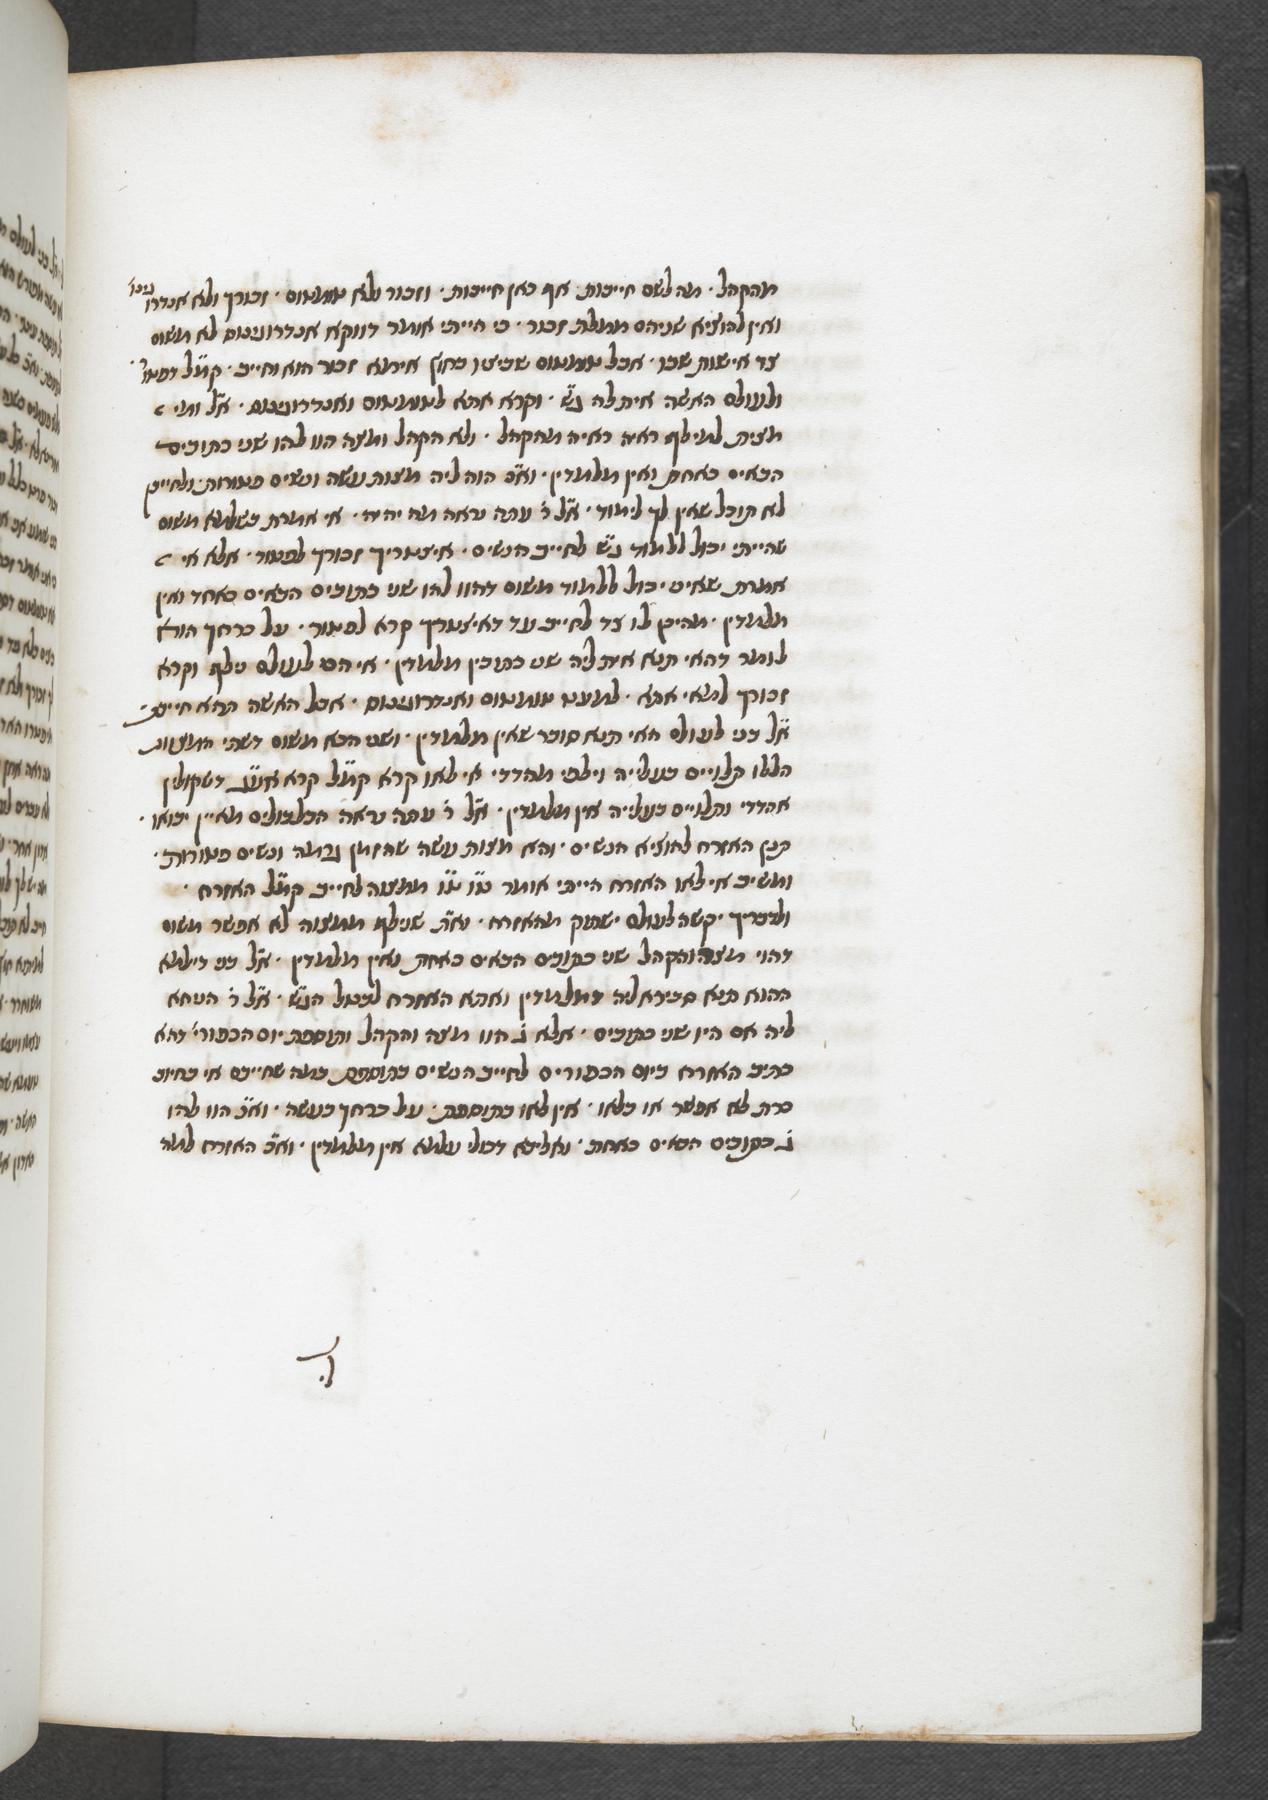 מהקהל · מה להלן חייבות אף כאן חייבות · וזכור ולא טומטום · זכורך ולא אנדרוגינוס
ואין להוציא שניהם ממלת זכור · כי הייתי אומר דווקא אנדרוגינוס לא משום
צד אישות שבו · אבל טומטום שביציו בחוץ אימא זכור הוא וחייב · קמ״ל דפטור ·
ולעולם האשה אית לה ג״ש · וקרא אתא לטומטום ואנדרוגינוס · א״ל ומי
מצית למילף ראיה ראיה מהקהל · ולא הקהל ומצה הוו להו שני כתובים
הבאים כאחת ואין מלמדין · וא״כ הוה ליה מצות עשה ונשים פטורות · ולחייבן
לא תוכל שאין לך לימוד · א״ל ר׳ עתה נראה מה יהיה · אי אמרת בשלמא משום
שהייתי יכול ללמוד ג״ש לחייב הנשים · איצטריך זכורך לפטור · אלא אי
אמרת שאיני יכול ללמוד משום דהוו להו שני כתובים הבאים כאחד ואין
מלמדין · מהיכן לו צד לחייב עד דאיצטריך קרא לפטור · על כרחך הוה
לומר דהאי תנא אית ליה שני כתובין מלמדין · אי הכי לעולם נילף וקרא
זכורך למאי אתא · למעט טומטום ואנדרוגינוס · אבל האשה תהא חייבת ·
א״ל בני לעולם האי תנא סובר שאין מלמדין · ושני הכא משום דשתי המצות
הללו תלויים בעלייה וילפי מהדדי אי לאו קרא קמ״ל קרא דשקולין
אהדדי ותלויים בעלייה אין מלמדין · א״ל ר׳ עתה נראה הבלבולים מאיין יבואו ·
כגון האזרח להוציא הנשים · והא מצות עשה שהזמן גרמה ונשים פטורות ·
ומשיב אי לאו האזרח הייתי אומר ט״ו ט״ו ממצה לחייב קמ״ל האזרח ·
ולדבריך יקשה לעולם ישתוק מהאזרח · וא״ת שנילף ממצה לא אפשר משום
דהוי מצה והקהל שני כתובים הבאים כאחת ואין מלמדין · א״ל בני דילמא
ההוא תנא סבירא ליה דמלמדין ואתא האזרח לבטל הג״ש · א״ל ר׳ הניחא
ליה אם היו שני כתובים · אלא ג׳ הוו מצה והקהל ותוספת יום הכפורי׳ דהא
כתיב האזרח ביום הכפורים לחייב הנשים בתוספת במה שחייבם אי בחיוב
כרת לא אפשר או בלאו · אין לאו בתוספת · על כרחך בעשה · וא״כ הוו להו
ג׳ כתובים הבאים כאחת · ואליבא דכולי עלמא אין מלמדין · וא״כ האזרח למה